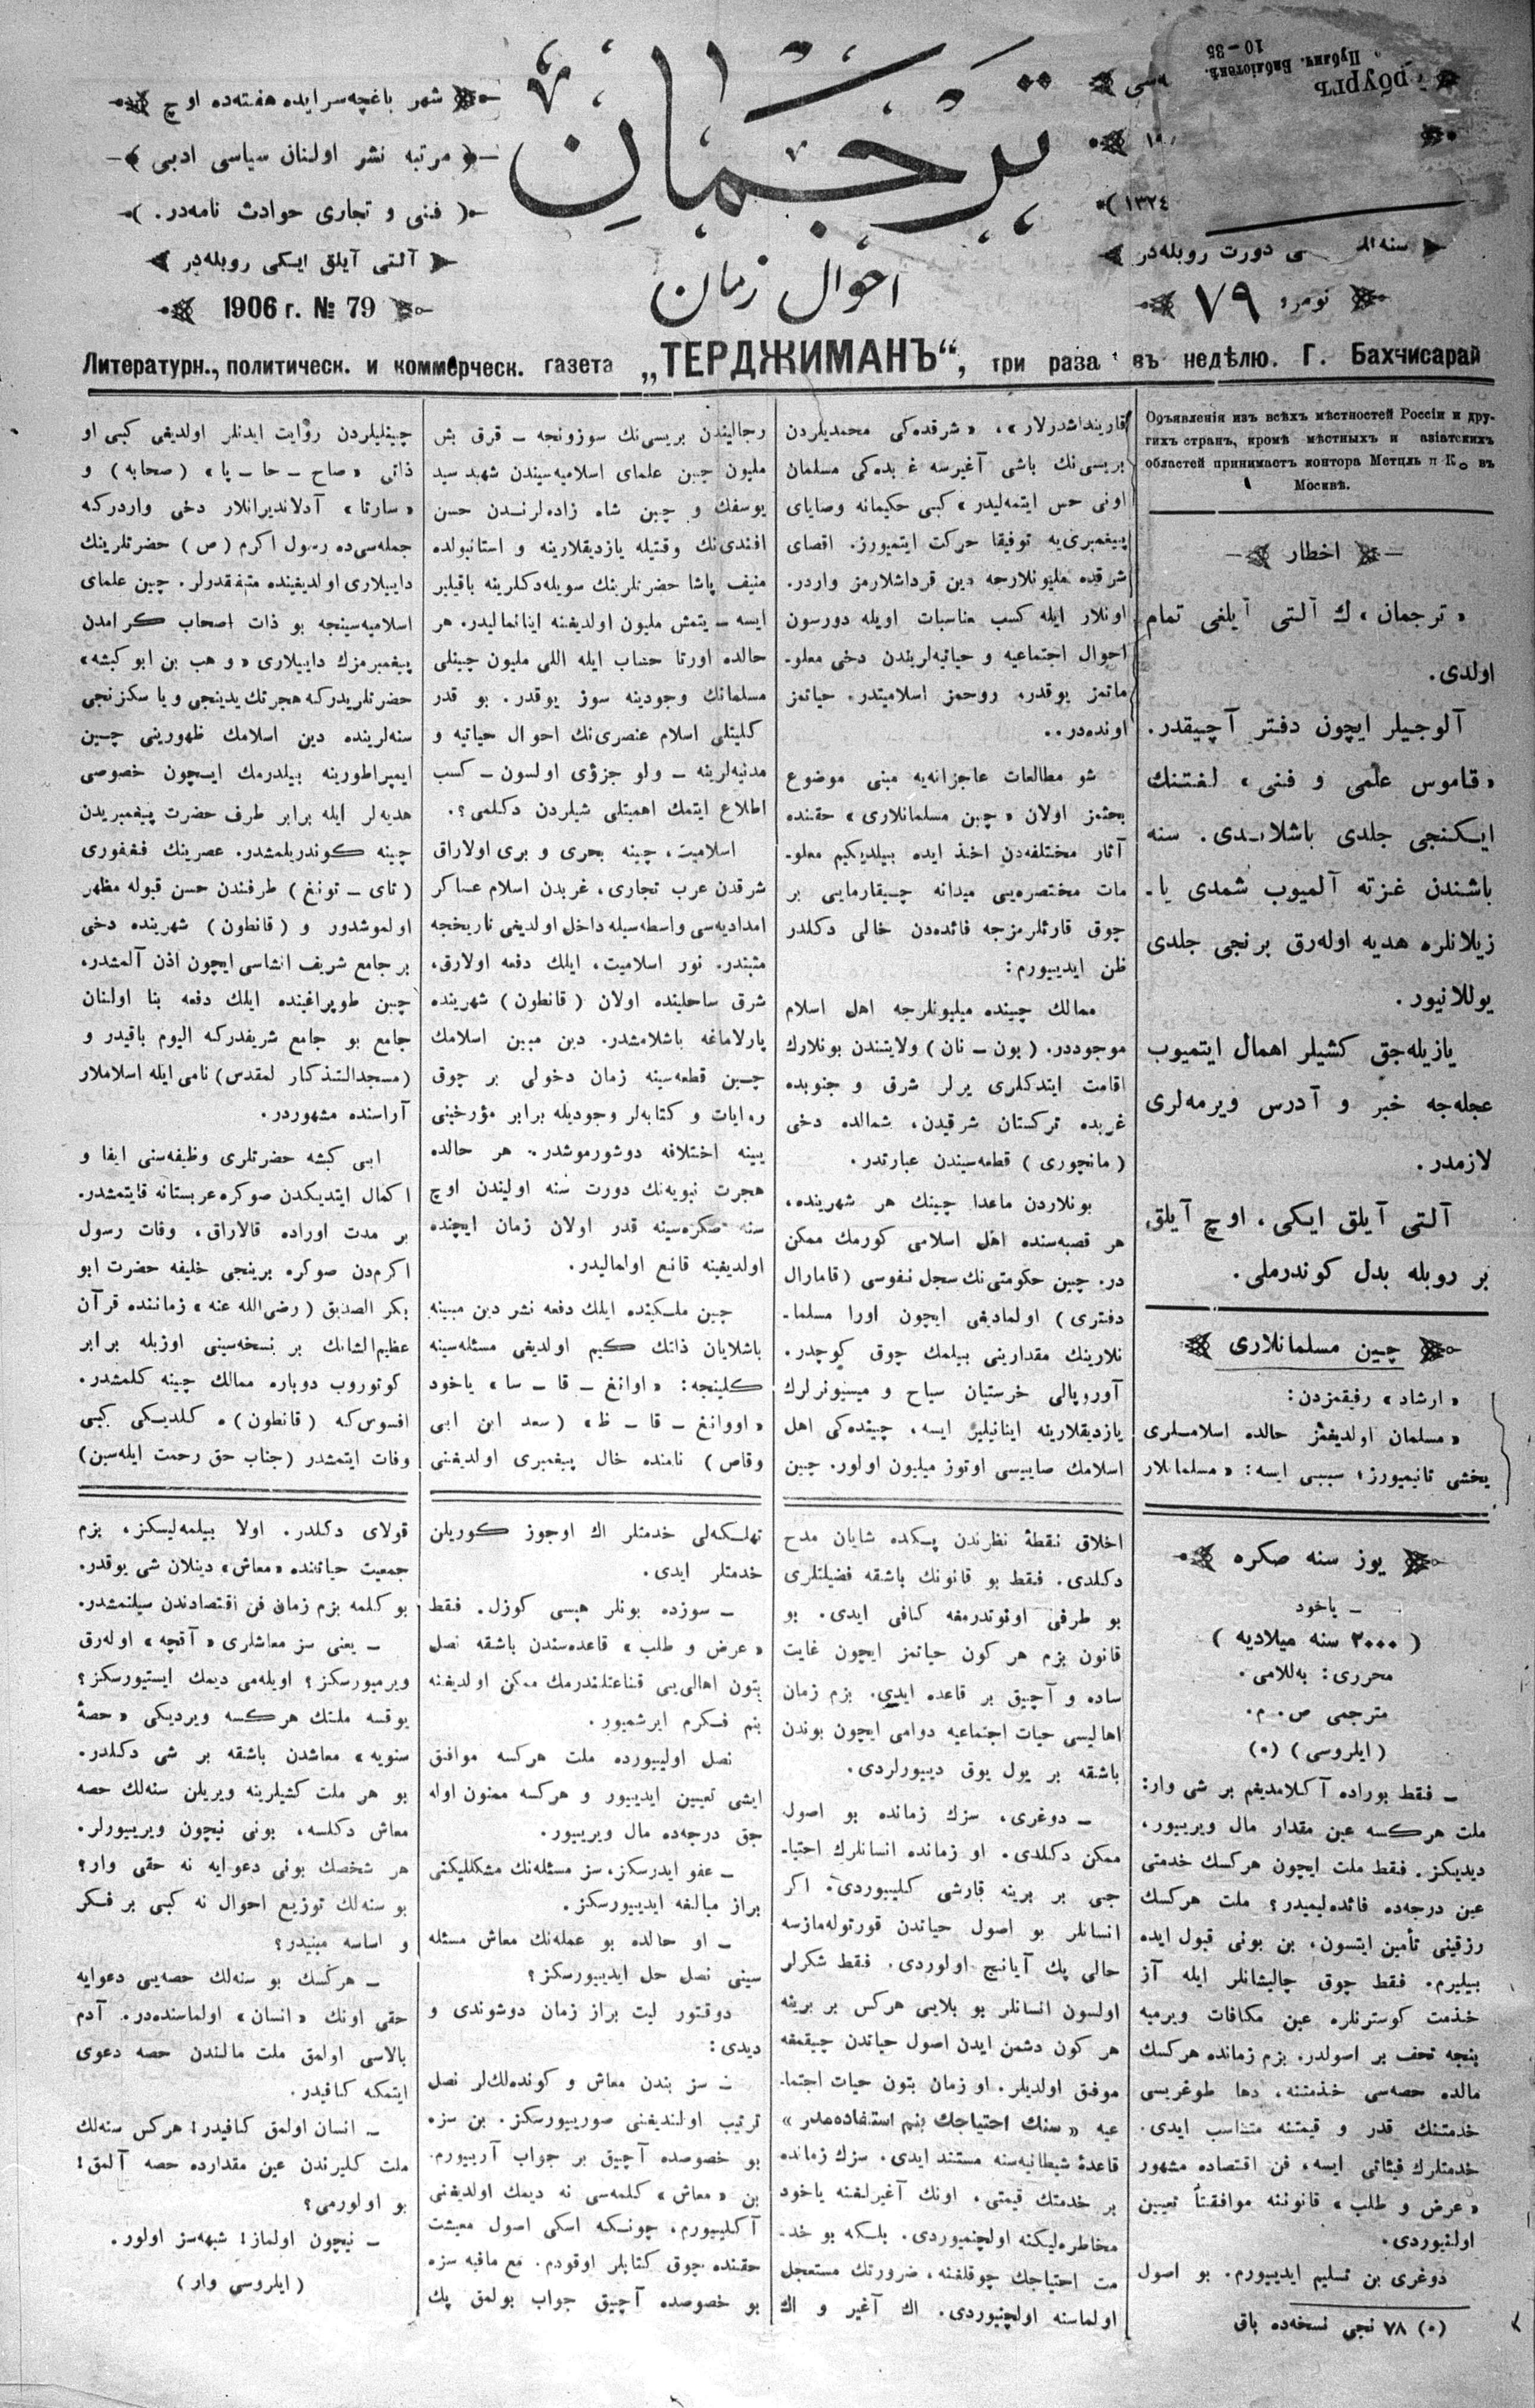 شهر باغچه‌سرایده هفته‌ده اوچ
مرتبه نشر اولنان سیاسی ادبی
فنی و تجاری حوادث نامه‌در.
آلتی آیلق ایکی روبله‌در
1906 г. № 79
ترجمان
احوال زمان
рбургъ
Публич. Библіотекѣ.
10 – 35
١٣٢٤
دورت روبله‌در
نومرو ٧٩
Литературн., политическ. и коммерческ. газета „ТЕРДЖИМАНЪ“, три раза въ недѣлю. Г. Бахчисарай
Объявленія изъ всѣхъ мѣстностей Россіи и дру-
гихъ странъ, кромѣ мѣстныхъ и азіатскихъ
областей принимаетъ контора Метцль и Ко въ
Москвѣ.
اخطار
« ترجمان » ك آلتی آیلغی تمام
اولدی.
آلوجیلر ایچون دفتر آچیقدر.
« قاموس علمی و فنی » لغتنك
ایکنجی جلدی باشلاندی. سنه
باشندن غزته آلمیوب شمدی یا-
زیلانلره هدیه اوله‌رق برنجی جلدی
یوللانیور.
یازیله‌جق کشیلر اهمال ایتمیوب
عجله‌جه خبر و آدرس ویرمه‌لری
لازمدر.
آلتی آیلق ایکی، اوچ آیلق
بر روبله بدل کوندرملی.
چین مسلمانلاری
« ارشاد » رفیقمزدن:
« مسلمان اولدیغمز حالده اسلاملری
یخشی تانیمیورز؛ سببی ایسه: « مسلمانلار
قارینداشدرلار »، « شرقده‌کی محمدیلردن
بریسی‌نك باشی آغیرسه غربده‌کی مسلمان
اونی حس ایتمه‌لیدر » کبی حکیمانه وصایای
پیغمبری‌یه توفیقا حرکت ایتمیورز. اقصای
شرقده ملیونلارجه دین قرداشلارمز واردر.
اونلار ایله کسب مناسبات اویله دورسون
احوال اجتماعیه و حیاتیه‌لریندن دخی معلو-
ماتمز یوقدر، روحمز اسلامیتدر، حیاتمز
اونده‌در..
شو مطالعات عاجزانه‌یه مبنی موضوع
بحثمز اولان « چین مسلمانلاری » حقنده
آثار مختلفه‌دن اخذ ایده بیلدیکیم معلو-
مات مختصره‌یی میدانه چیقارمایی بر
چوق قارئلرمزجه فائده‌دن خالی دکلدر
ظن ایدییورم:
ممالك چینده میلیونلرجه اهل اسلام
موجوددر. ( یون - نان ) ولایتندن بونلارك
اقامت ایتدکلری یرلر شرق و جنوبده
غربده ترکستان شرقیدن، شمالده دخی
( مانچوری ) قطعه‌سیندن عبارتدر.
بونلاردن ماعدا چینك هر شهرینده،
هر قصبه‌سنده اهل اسلامی کورمك ممکن
در. چین حکومتی‌نك سجل نفوسی ( قامارال
دفتری ) اولمادیغی ایچون اورا مسلما-
نلارینك مقدارینی بیلمك چوق کوچدر.
آوروپالی خرستیان سیاح و میسیونرلرك
یازدیقلارینه اینانیلیر ایسه، چینده‌کی اهل
اسلامك صاییسی اوتوز میلیون اولور. چین
رجالیندن بریسی‌نك سوزونجه - قرق بش
ملیون چین علمای اسلامیه‌سیندن شهید سید
یوسفك و چین شاه زاده‌لرندن حسن
افندی‌نك وقتیله یازدیقلارینه و استانبولده
منیف پاشا حضرتلرینك سویله‌دکلرینه باقیلیر
ایسه - یتمش ملیون اولدیغنه اینانمالیدر. هر
حالده اورتا حساب ایله اللی ملیون چینلی
مسلمانك وجودینه سوز یوقدر. بو قدر
کلیتلی اسلام عنصری‌نك احوال حیاتیه و
مدنیه‌لرینه - ولو جزؤی اولسون - کسب
اطلاع ایتمك اهمیتلی شیلردن دکلمی؟.
اسلامیت، چینه بحری و بری اولاراق
شرقدن عرب تجاری، غربدن اسلام عساکر
امدادیه‌سی واسطه‌سیله داخل اولدیغی تاریخجه
مثبتدر. نور اسلامیت، ایلك دفعه اولارق،
شرق ساحلینده اولان ( قانطون ) شهرینده
پارلاماغه باشلامشدر. دین مبین اسلامك
چین قطعه‌سینه زمان دخولی بر چوق
روایات و کتابه‌لر وجودیله برابر مؤرخینی
یینه اختلافه دوشورموشدر. هر حالده
هجرت نبویه‌نك دورت سنه اولیندن اوچ
سنه صکره‌سینه قدر اولان زمان ایچنده
اولدیغینه قانع اولمالیدر.
چین ملکینده ایلك دفعه نشر دین مبینه
باشلایان ذاتك کیم اولدیغی مسئله‌سینه
کلینجه: « اوانغ - قا - سا » یاخود
« اووانغ - قا - ظ » ( سعد ابن ابی
وقاص ) نامنده خال پیغمبری اولدیغنی
چینلیلردن روایت ایدنلر اولدیغی کبی او
ذاتی « صاح - حا - یا » ( صحابه ) و
« سارتا » آدلاندیرانلار دخی واردرکه
جمله‌سی‌ده رسول اکرم ( ص ) حضرتلرینك
داییلاری اولدیغینده متفقدرلر. چین علمای
اسلامیه‌سینجه بو ذات اصحاب کرامدن
پیغمبرمزك داییلاری « وهب بن ابو کبشه »
حضرتلریدرکه هجرتك یدینجی و یا سکزنجی
سنه‌لرینده دین اسلامك ظهورینی چین
ایمپراطورینه بیلدرمك ایچون خصوصی
هدیه‌لر ایله برابر طرف حضرت پیغمبریدن
چینه کوندریلمشدر. عصرینك فغفوری
( تای - تونغ ) طرفندن حسن قبوله مظهر
اولموشدور و ( قانطون ) شهرینده دخی
بر جامع شریف انشاسی ایچون اذن آلمشدر،
چین طوپراغینده ایلك دفعه بنا اولنان
جامع بو جامع شریفدرکه الیوم باقیدر و
( مسجدالتذکار لمقدس ) نامی ایله اسلاملار
آراسنده مشهوردر.
ابی کبشه حضرتلری وظیفه‌سنی ایفا و
اکمال ایتدیکدن صوکره عربستانه قایتمشدر.
بر مدت اوراده قالاراق، وفات رسول
اکرم‌دن صوکره برینجی خلیفه حضرت ابو
بکر الصدیق ( رضی الله عنه ) زماننده قرآن
عظیم‌الشانك بر نسخه‌سینی اوزیله برابر
کوتوروب دوباره ممالك چینه کلمشدر.
افسوس‌که ( قانطون )ه کلدیکی کبی
وفات ایتمشدر ( جناب حق رحمت ایله‌سین )
یوز سنه صکره
– یاخود
( ٢٠٠٠ سنه میلادیه )
محرری: به‌للامی.
مترجمی ص. م.
( ایلروسی ) (٠)
– فقط بوراده آکلامدیغم بر شی وار:
ملت هرکسه عین مقدار مال ویرییور،
دیدیکز. فقط ملت ایچون هرکسك خدمتی
عین درجه‌ده فائده‌لیمیدر؟ ملت هرکسك
رزقینی تأمین ایتسون، بن بونی قبول ایده
بیلیرم. فقط چوق چالیشانلر ایله آز
خدمت کوسترنلره عین مکافات ویرمیه
بنجه تحف بر اصولدر. بزم زمانده هرکسك
مالده حصه‌سی خدمتنه، دها طوغریسی
خدمتنك قدر و قیمتنه متناسب ایدی.
خدمتلرك فیئاتی ایسه، فن اقتصاده مشهور
« عرض و طلب » قانوننه موافقتاً تعیین
اولنیوردی.
دوغری بن تسلیم ایدییورم. بو اصول
(٠) ٧٨ نجی نسخه‌ده باق
اخلاق نقطهٔ نظرندن پکده شایان مدح
دکلدی. فقط بو قانونك باشقه فضیلتلری
بو طرفی اونوتدرمغه کافی ایدی. بو
قانون بزم هر کون حیاتمز ایچون غایت
ساده و آچیق بر قاعده ایدی. بزم زمان
اهالیسی حیات اجتماعیه دوامی ایچون بوندن
باشقه بر یول یوق دییورلردی.
– دوغری، سزك زمانده بو اصول
ممکن دکلدی. او زمانده انسانلرك احتیا-
جی بر برینه قارشی کلییوردی. اکر
انسانلر بو اصول حیاتدن قورتوله‌مازسه
حالی پك آیانچ اولوردی. فقط شکرلر
اولسون انسانلر بو بلایی هرکس بر برینه
هر کون دشمن ایدن اصول حیاتدن چیقمغه
موفق اولدیلر. او زمان بتون حیات اجتما-
عیه « سنك احتیاجك بنم استفاده‌مدر »
قاعدهٔ شیطانیه‌سنه مستند ایدی. سزك زمانده
بر خدمتك قیمتی، اونك آغیرلغنه یاخود
مخاطره‌لیکنه اولچنمیوردی. بلکه بو خد-
مت احتیاجك چوقلغنه، ضرورتك مستعجل
اولماسنه اولچنیوردی. اك آغیر و اك
تهلکه‌لی خدمتلر اك اوجوز کوریلن
خدمتلر ایدی.
– سوزده بونلر هپسی کوزل. فقط
« عرض و طلب » قاعده‌سندن باشقه نصل
بتون اهالی‌یی قناعتلندرمك ممکن اولدیغنه
بنم فکرم ایرشمیور.
نصل اولییورده ملت هرکسه موافق
ایشی تعیین ایدییور و هرکسه ممنون اوله
جق درجه‌ده مال ویرییور.
– عفو ایدرسکز، سز مسئله‌نك مشکللیکنی
براز مبالغه ایدییورسکز.
– او حالده بو عمله‌نك معاش مسئله
سینی نصل حل ایدییورسکز؟
دوقتور لیت براز زمان دوشوندی و
دیدی:
– سز بندن معاش و کونده‌لك‌لر نصل
ترتیب اولندیغنی صورییورسکز. بن سزه
بو خصوصده آچیق بر جواب آرییورم.
بن « معاش » کلمه‌سی نه دیمك اولدیغنی
آکلییورم، چونکه اسکی اصول معیشت
حقنده چوق کتابلر اوقودم. مع مافیه سزه
بو خصوصده آچیق جواب بولمق پك
قولای دکلدر. اولا بیلمه‌لیسکز، بزم
جمعیت حیاتنده « معاش » دینلان شی یوقدر.
بو کلمه بزم زمان فن اقتصادندن سیلنمشدر.
– یعنی سز معاشلری « آقچه » اوله‌رق
ویرمیورسکز؟ اویله‌می دیمك ایستیورسکز؟
یوقسه ملتك هرکسه ویردیکی « حصهٔ
سنویه » معاشدن باشقه بر شی دکلدر.
بو هر ملت کشیلرینه ویریلن سنه‌لك حصه
معاش دکلسه، بونی نیچون ویرییورلر.
هر شخصك بونی دعوایه نه حقی وار؟
بو سنه‌لك توزیع احوال نه کبی بر فکر
و اساسه مبنیدر؟
– هرکسك بو سنه‌لك حصه‌یی دعوایه
حقی اونك « انسان » اولماسنده‌در. آدم
بالاسی اولمق ملت مالندن حصه دعوی
ایتمکه کافیدر.
– انسان اولمق کافیدر! هرکس سنه‌لك
ملت کلیرندن عین مقدارده حصه آلمق!
بو اولورمی؟
– نیچون اولماز! شبهه‌سز اولور.
( ایلروسی وار )